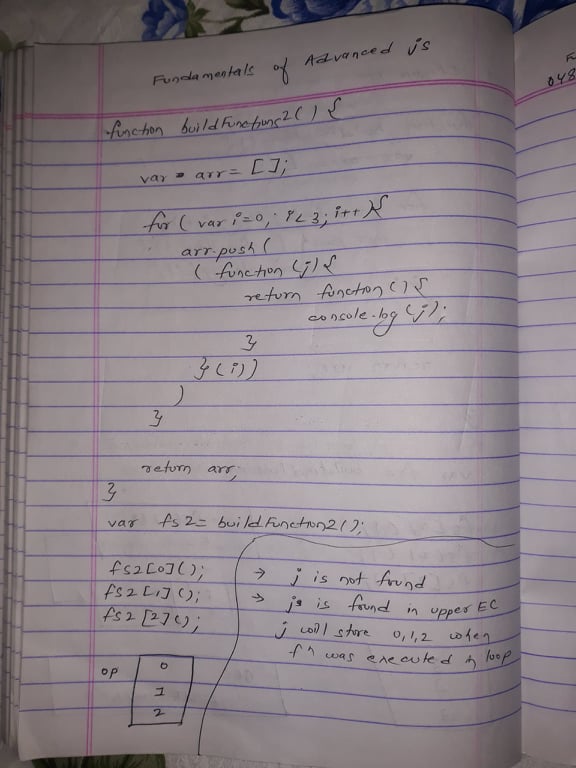 Fundamentals of Advanced js
function buildFunctions2() {
var arr = [];
for ( var i=0; i<3; i++ ){
arr.push (
( function (j) {
return function () {
console.log (j);
}
} (i))
)
}
return arr;
}
var fs2 = buildFunction2();
fs2[0]();
fs2[1]();
fs2[2]();
→ j is not found
→ js is found in upper EC
j will store 0,1,2 when
fn was executed in loop
op
0
1
2
048